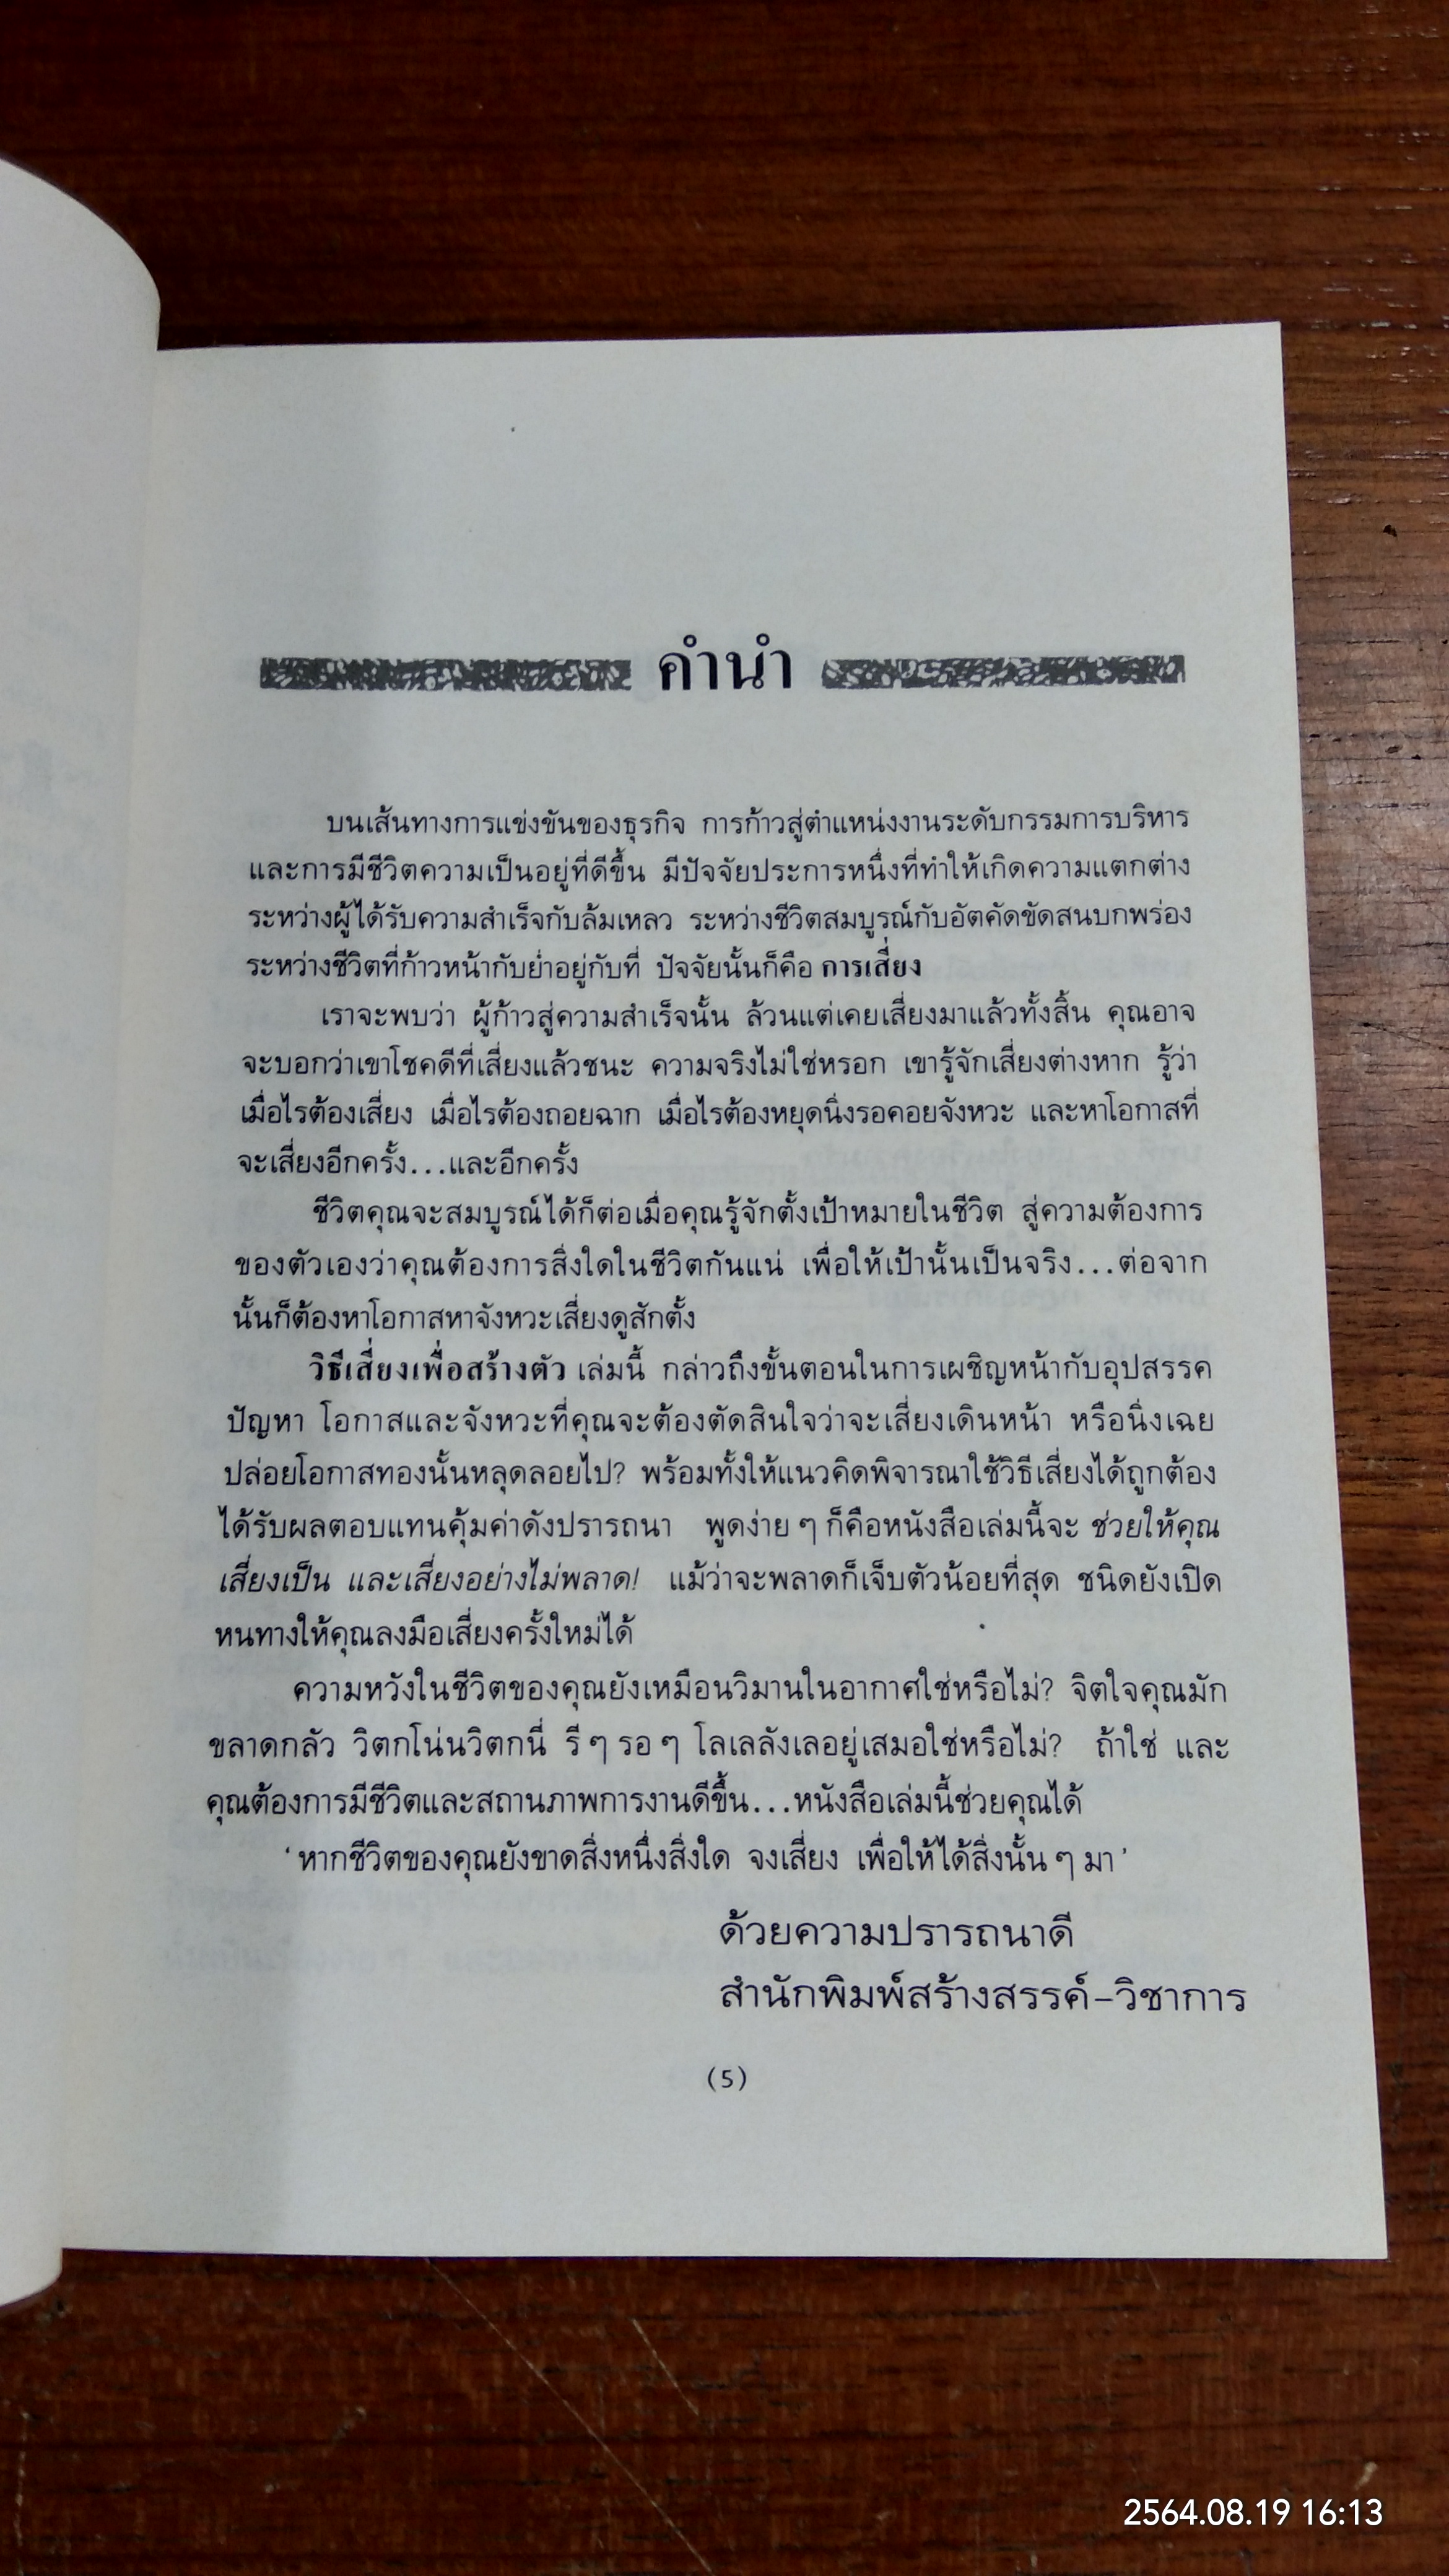 คำนำ
บนเส้นทางการแข่งขันของธุรกิจ การก้าวสู่ตำแหน่งงานระดับกรรมการบริหาร
และการมีชีวิตความเป็นอยู่ที่ดีขึ้น มีปัจจัยประการหนึ่งที่ทำให้เกิดความแตกต่าง
ระหว่างผู้ได้รับความสำเร็จกับล้มเหลว ระหว่างชีวิตสมบูรณ์กับอัตคัดขัดสนบกพร่อง
ระหว่างชีวิตที่ก้าวหน้ากับย่ำอยู่กับที่ ปัจจัยนั้นก็คือ การเสี่ยง
เราจะพบว่า ผู้ก้าวสู่ความสำเร็จนั้น ล้วนแต่เคยเสี่ยงมาแล้วทั้งสิ้น คุณอาจ
จะบอกว่าเขาโชคดีที่เสี่ยงแล้วชนะ ความจริงไม่ใช่หรอก เขารู้จักเสี่ยงต่างหาก รู้ว่า
เมื่อไรต้องเสี่ยง เมื่อไรต้องถอยฉาก เมื่อไรต้องหยุดนิ่งรอคอยจังหวะ และหาโอกาสที่
จะเสี่ยงอีกครั้ง...และอีกครั้ง
ชีวิตคุณจะสมบูรณ์ได้ก็ต่อเมื่อคุณรู้จักตั้งเป้าหมายในชีวิต สู่ความต้องการ
ของตัวเองว่าคุณต้องการสิ่งใดในชีวิตกันแน่ เพื่อให้เป้านั้นเป็นจริง...ต่อจาก
นั้นก็ต้องหาโอกาสหาจังหวะเสี่ยงดูสักตั้ง
วิธีเสี่ยงเพื่อสร้างตัว เล่มนี้ กล่าวถึงขั้นตอนในการเผชิญหน้ากับอุปสรรค
ปัญหา โอกาสและจังหวะที่คุณจะต้องตัดสินใจว่าจะเสี่ยงเดินหน้า หรือนิ่งเฉย
ปล่อยโอกาสทองนั้นหลุดลอยไป? พร้อมทั้งให้แนวคิดพิจารณาใช้วิธีเสี่ยงได้ถูกต้อง
ได้รับผลตอบแทนคุ้มค่าดังปรารถนา พูดง่าย ๆ ก็คือหนังสือเล่มนี้จะ ช่วยให้คุณ
เสี่ยงเป็น และเสี่ยงอย่างไม่พลาด! แม้ว่าจะพลาดก็เจ็บตัวน้อยที่สุด ชนิดยังเปิด
หนทางให้คุณลงมือเสี่ยงครั้งใหม่ได้
ความหวังในชีวิตของคุณยังเหมือนวิมานในอากาศใช่หรือไม่? จิตใจคุณมัก
ขลาดกลัว วิตกโน่นวิตกนี่ รี ๆ รอ ๆ โลเลลังเลอยู่เสมอใช่หรือไม่? ถ้าใช่ และ
คุณต้องการมีชีวิตและสถานภาพการงานดีขึ้น...หนังสือเล่มนี้ช่วยคุณได้
'หากชีวิตของคุณยังขาดสิ่งหนึ่งสิ่งใด จงเสี่ยง เพื่อให้ได้สิ่งนั้น ๆ มา'
ด้วยความปรารถนาดี
สำนักพิมพ์สร้างสรรค์-วิชาการ
(5)
2564.08.19 16:13